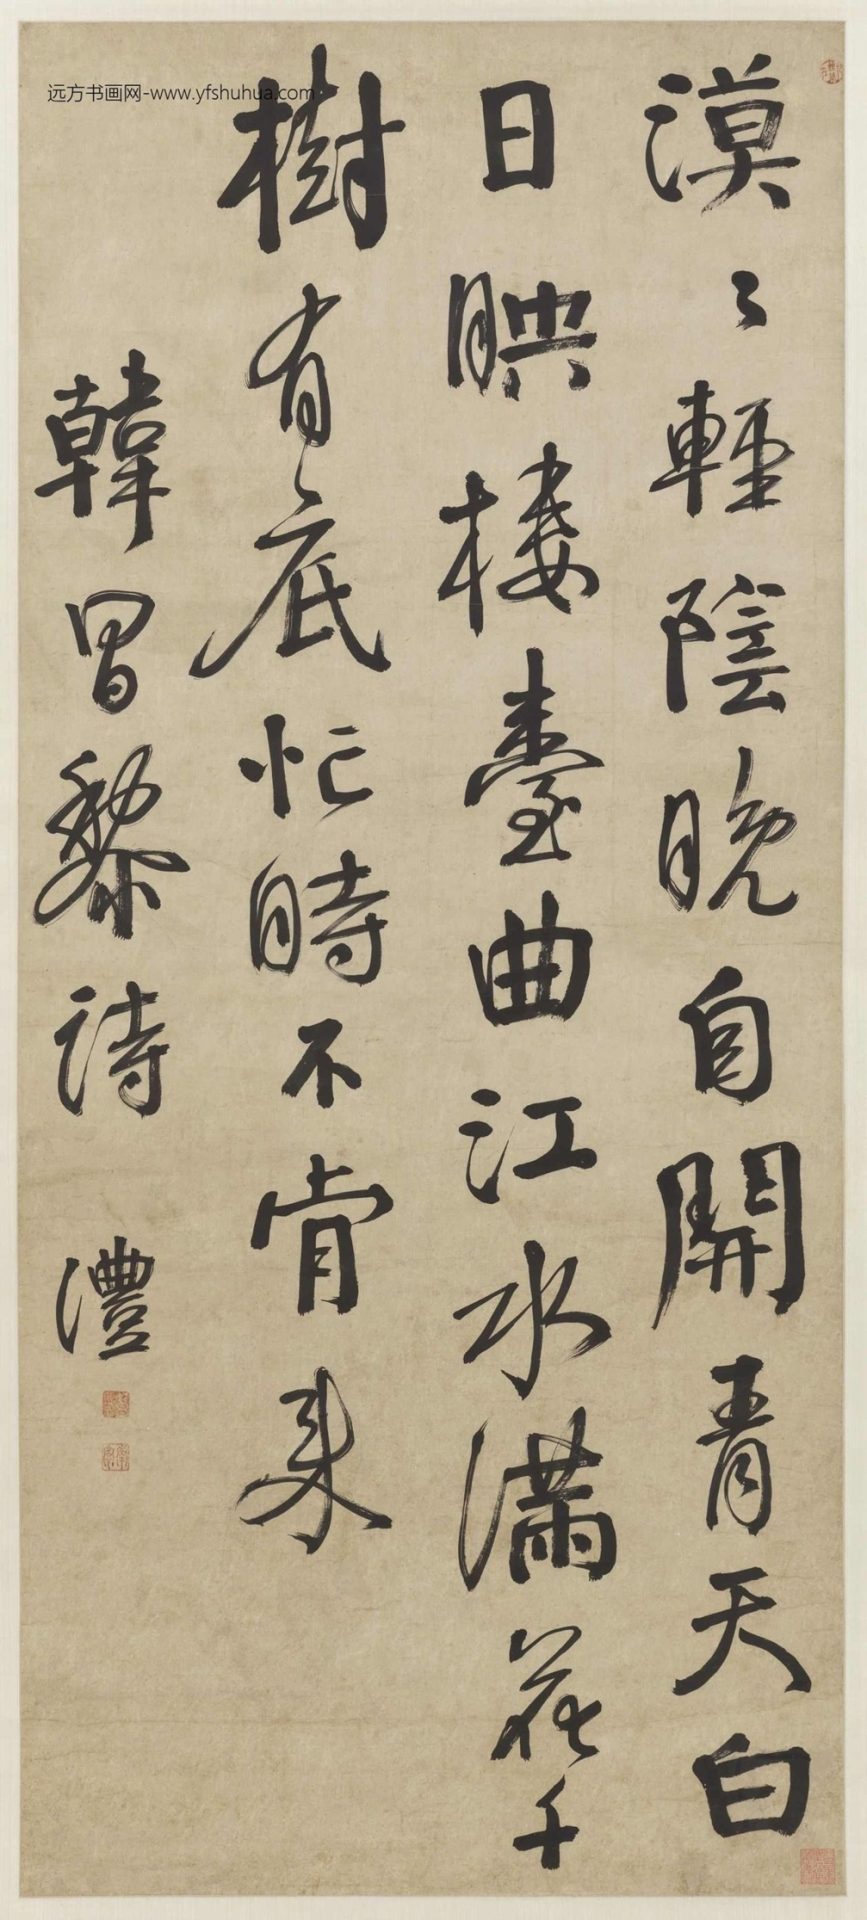 漠〻輕陰晚自開青天白
日映樓臺曲江水滿花千
樹有底忙時不肯来
韓昌黎詩 澧
远方书画网-www.yfshuhua.com